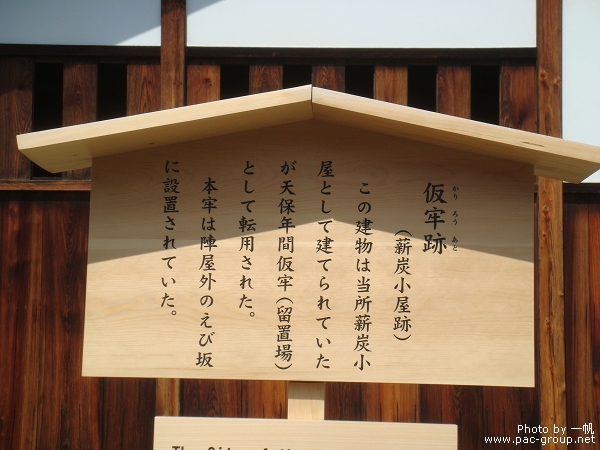 仮牢跡
かり ろう あと
（薪炭小屋跡）
この建物は当所薪炭小
屋として建てられていた
が天保年間仮牢（留置場）
として転用された。
本牢は陣屋外のえび坂
に設置されていた。
Photo by 一帆
www.pac-group.net